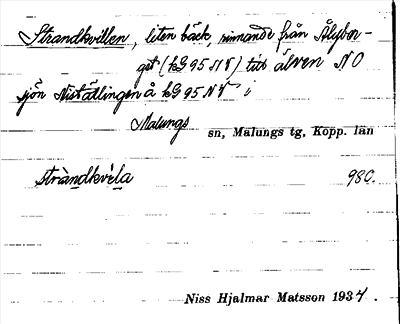 Strandkvillen, liten bäck, rinnande från Ålybor-
get (kG 95 NV) till älven NO
sjön Nistätlingen å kG 95 NV i
Malungs sn, Malungs tg, Kopp. län
stràndkvèla 980.
Niss Hjalmar Matsson 1934.